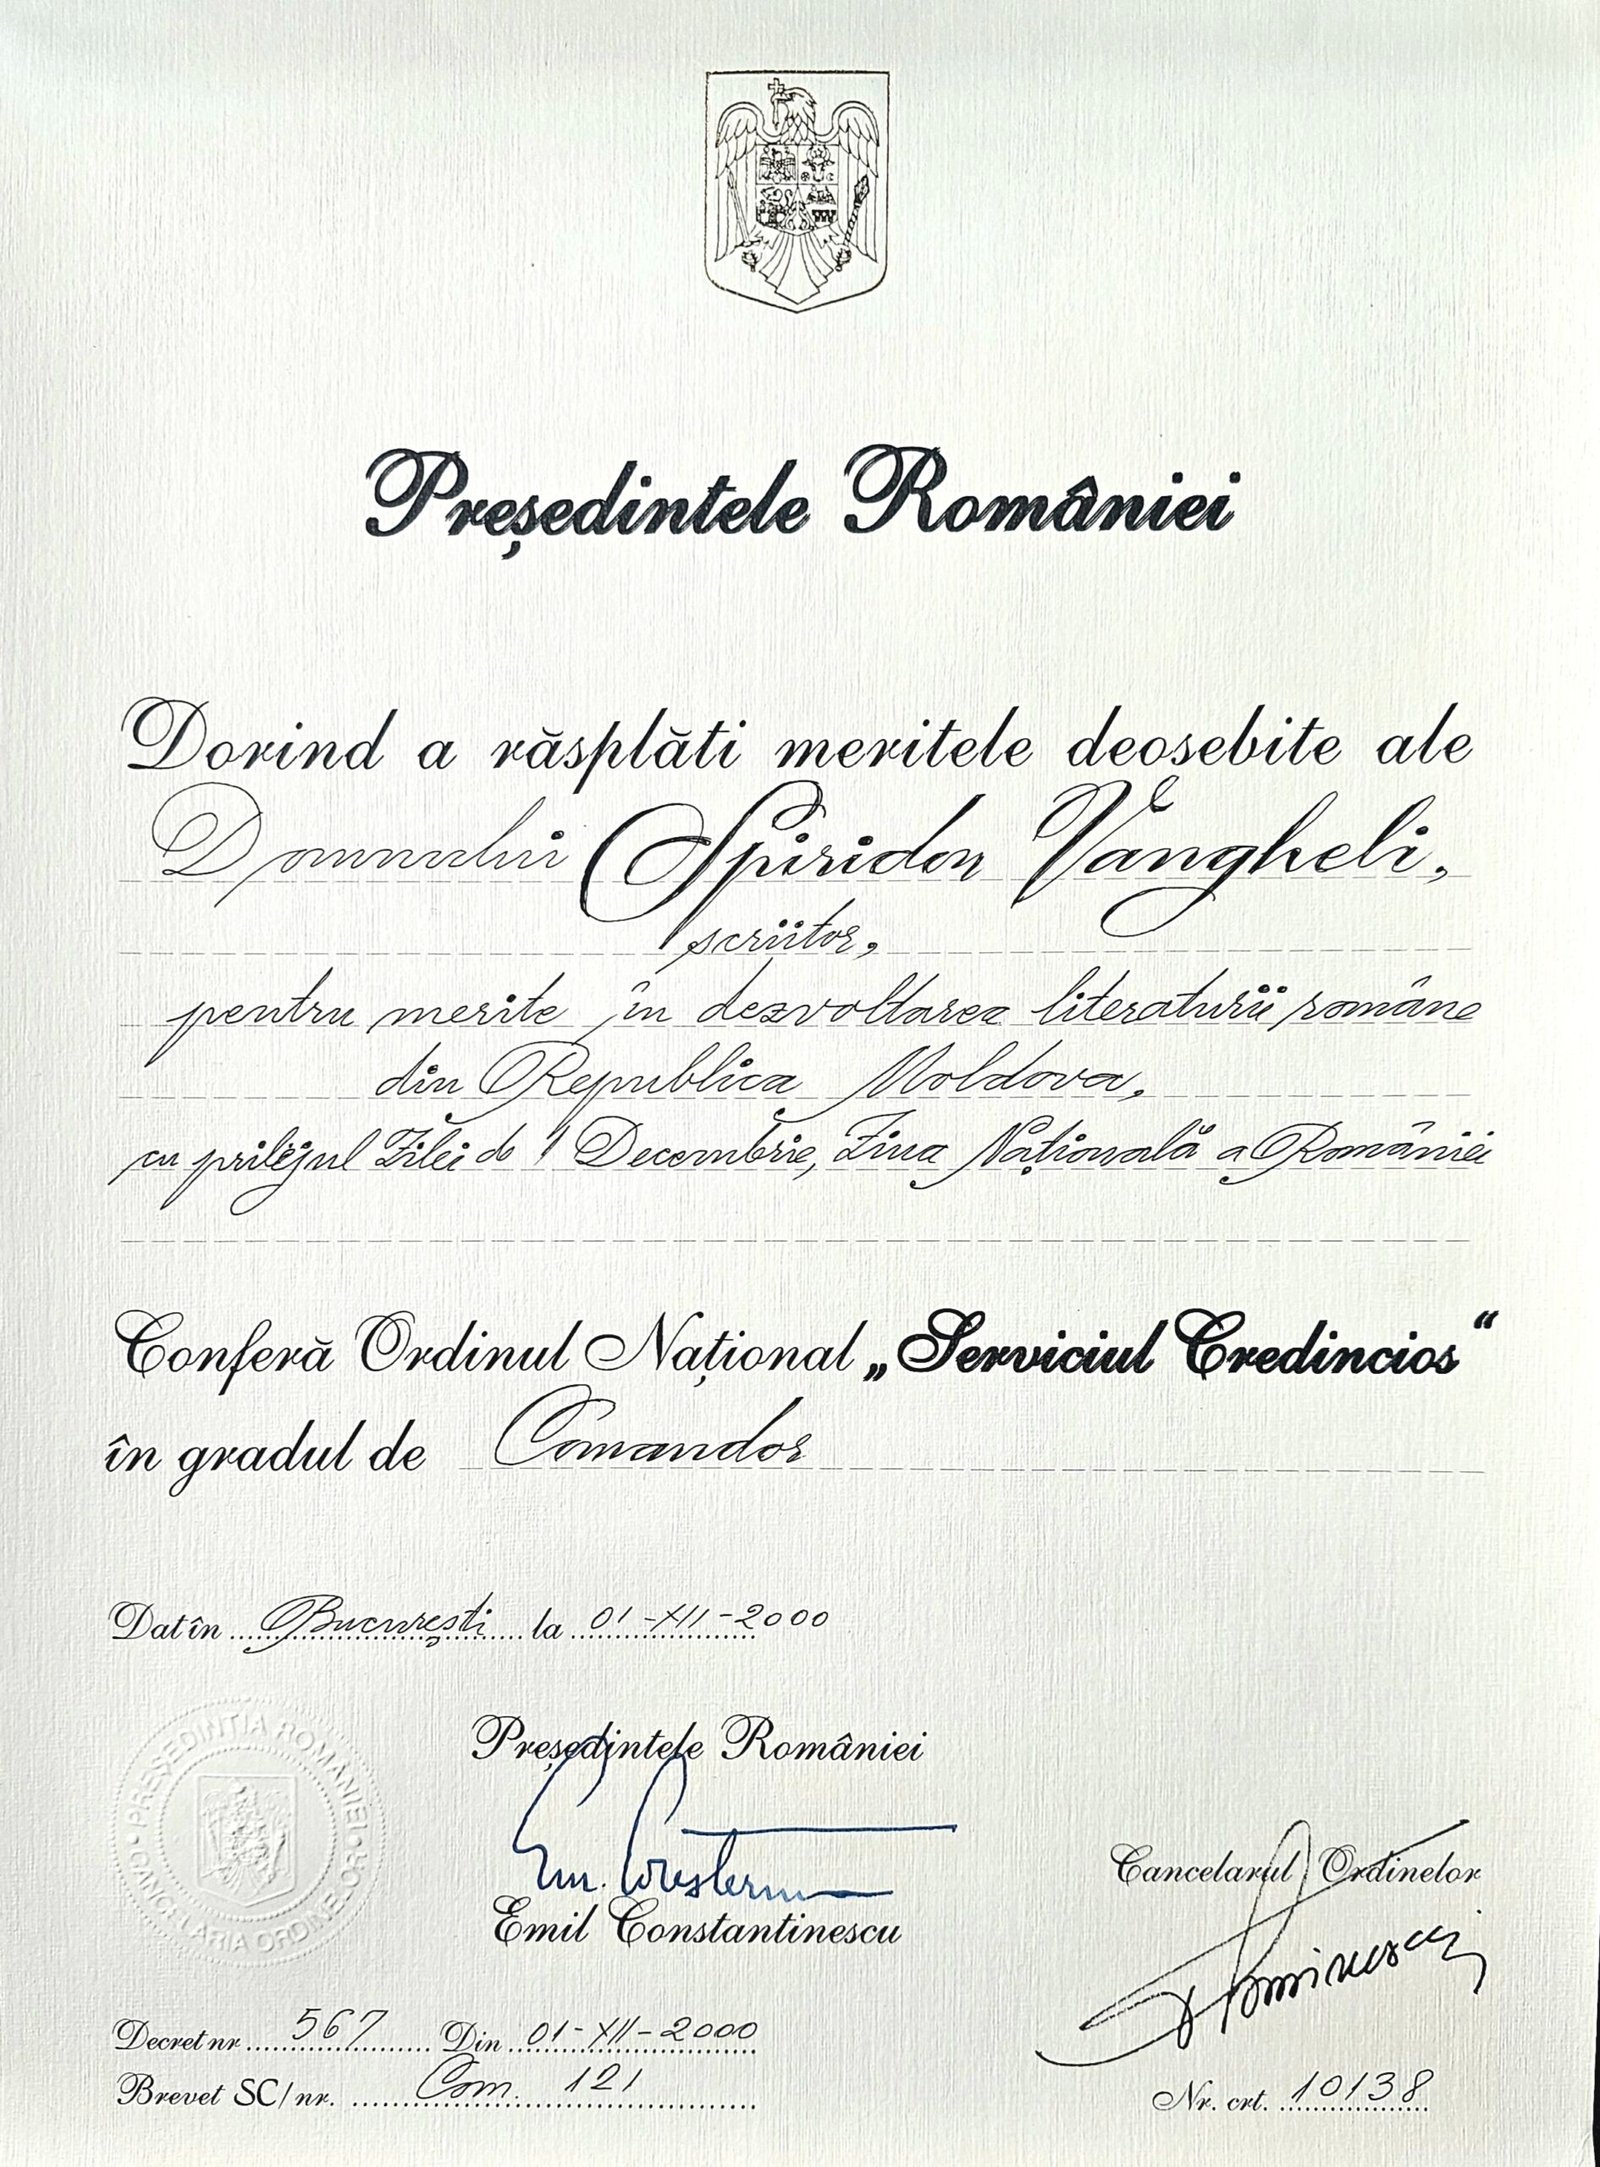 Președintele României
Dorind a răsplăti meritele deosebite ale
Domnului Spiridon Vangheli,
scriitor,
pentru merite în dezvoltarea literaturii române
din Republica Moldova,
cu prilejul Zilei de 1 Decembrie, Ziua Națională a României
Conferă Ordinul Național „Serviciul Credincios“
în gradul de Comandor
Dat în București la 01-XII-2000
Președintele României
Em. Constantinescu
Emil Constantinescu
Cancelarul Ordinelor
PREȘEDINTIA ROMÂNIEI • CANCELARIA ORDINELOR •
Decret nr 567 Din 01-XII-2000
Brevet SC/nr. Com. 121
Nr. crt. 10138